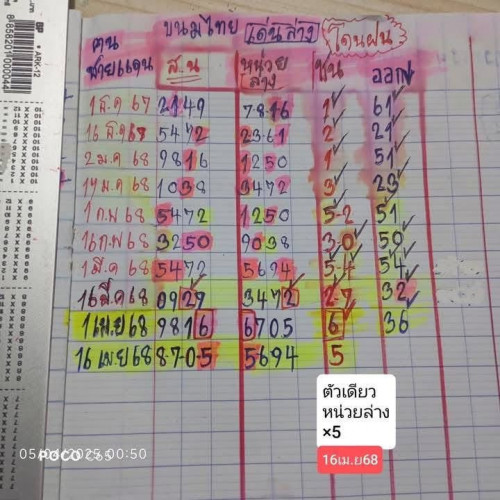 ฅน ขนมไทย เด่นล่าง โดนฝน
ชายแดน ส.น หน่วยล่าง ชน ออก
1 ธ.ค 67 2149 7816 1 61
16 ธ.ค 67 5472 2361 2 21
2 ม.ค 68 9816 1250 1 51
17 ม.ค 68 1038 3472 3 23
1 ก.พ 68 5472 1250 5-2 51
16 ก.พ 68 3250 9038 3-0 50
1 มี.ค 68 5472 5694 5.4 54
16 มี.ค 68 0927 3472 2-7 32
1 เม.ย 68 9816 6705 6 36
16 เม.ย 68 8705 5694 5
ตัวเดียว
หน่วยล่าง
×5
16เม.ย68
05/04/2025 00:50
POCO C65
ARK-12